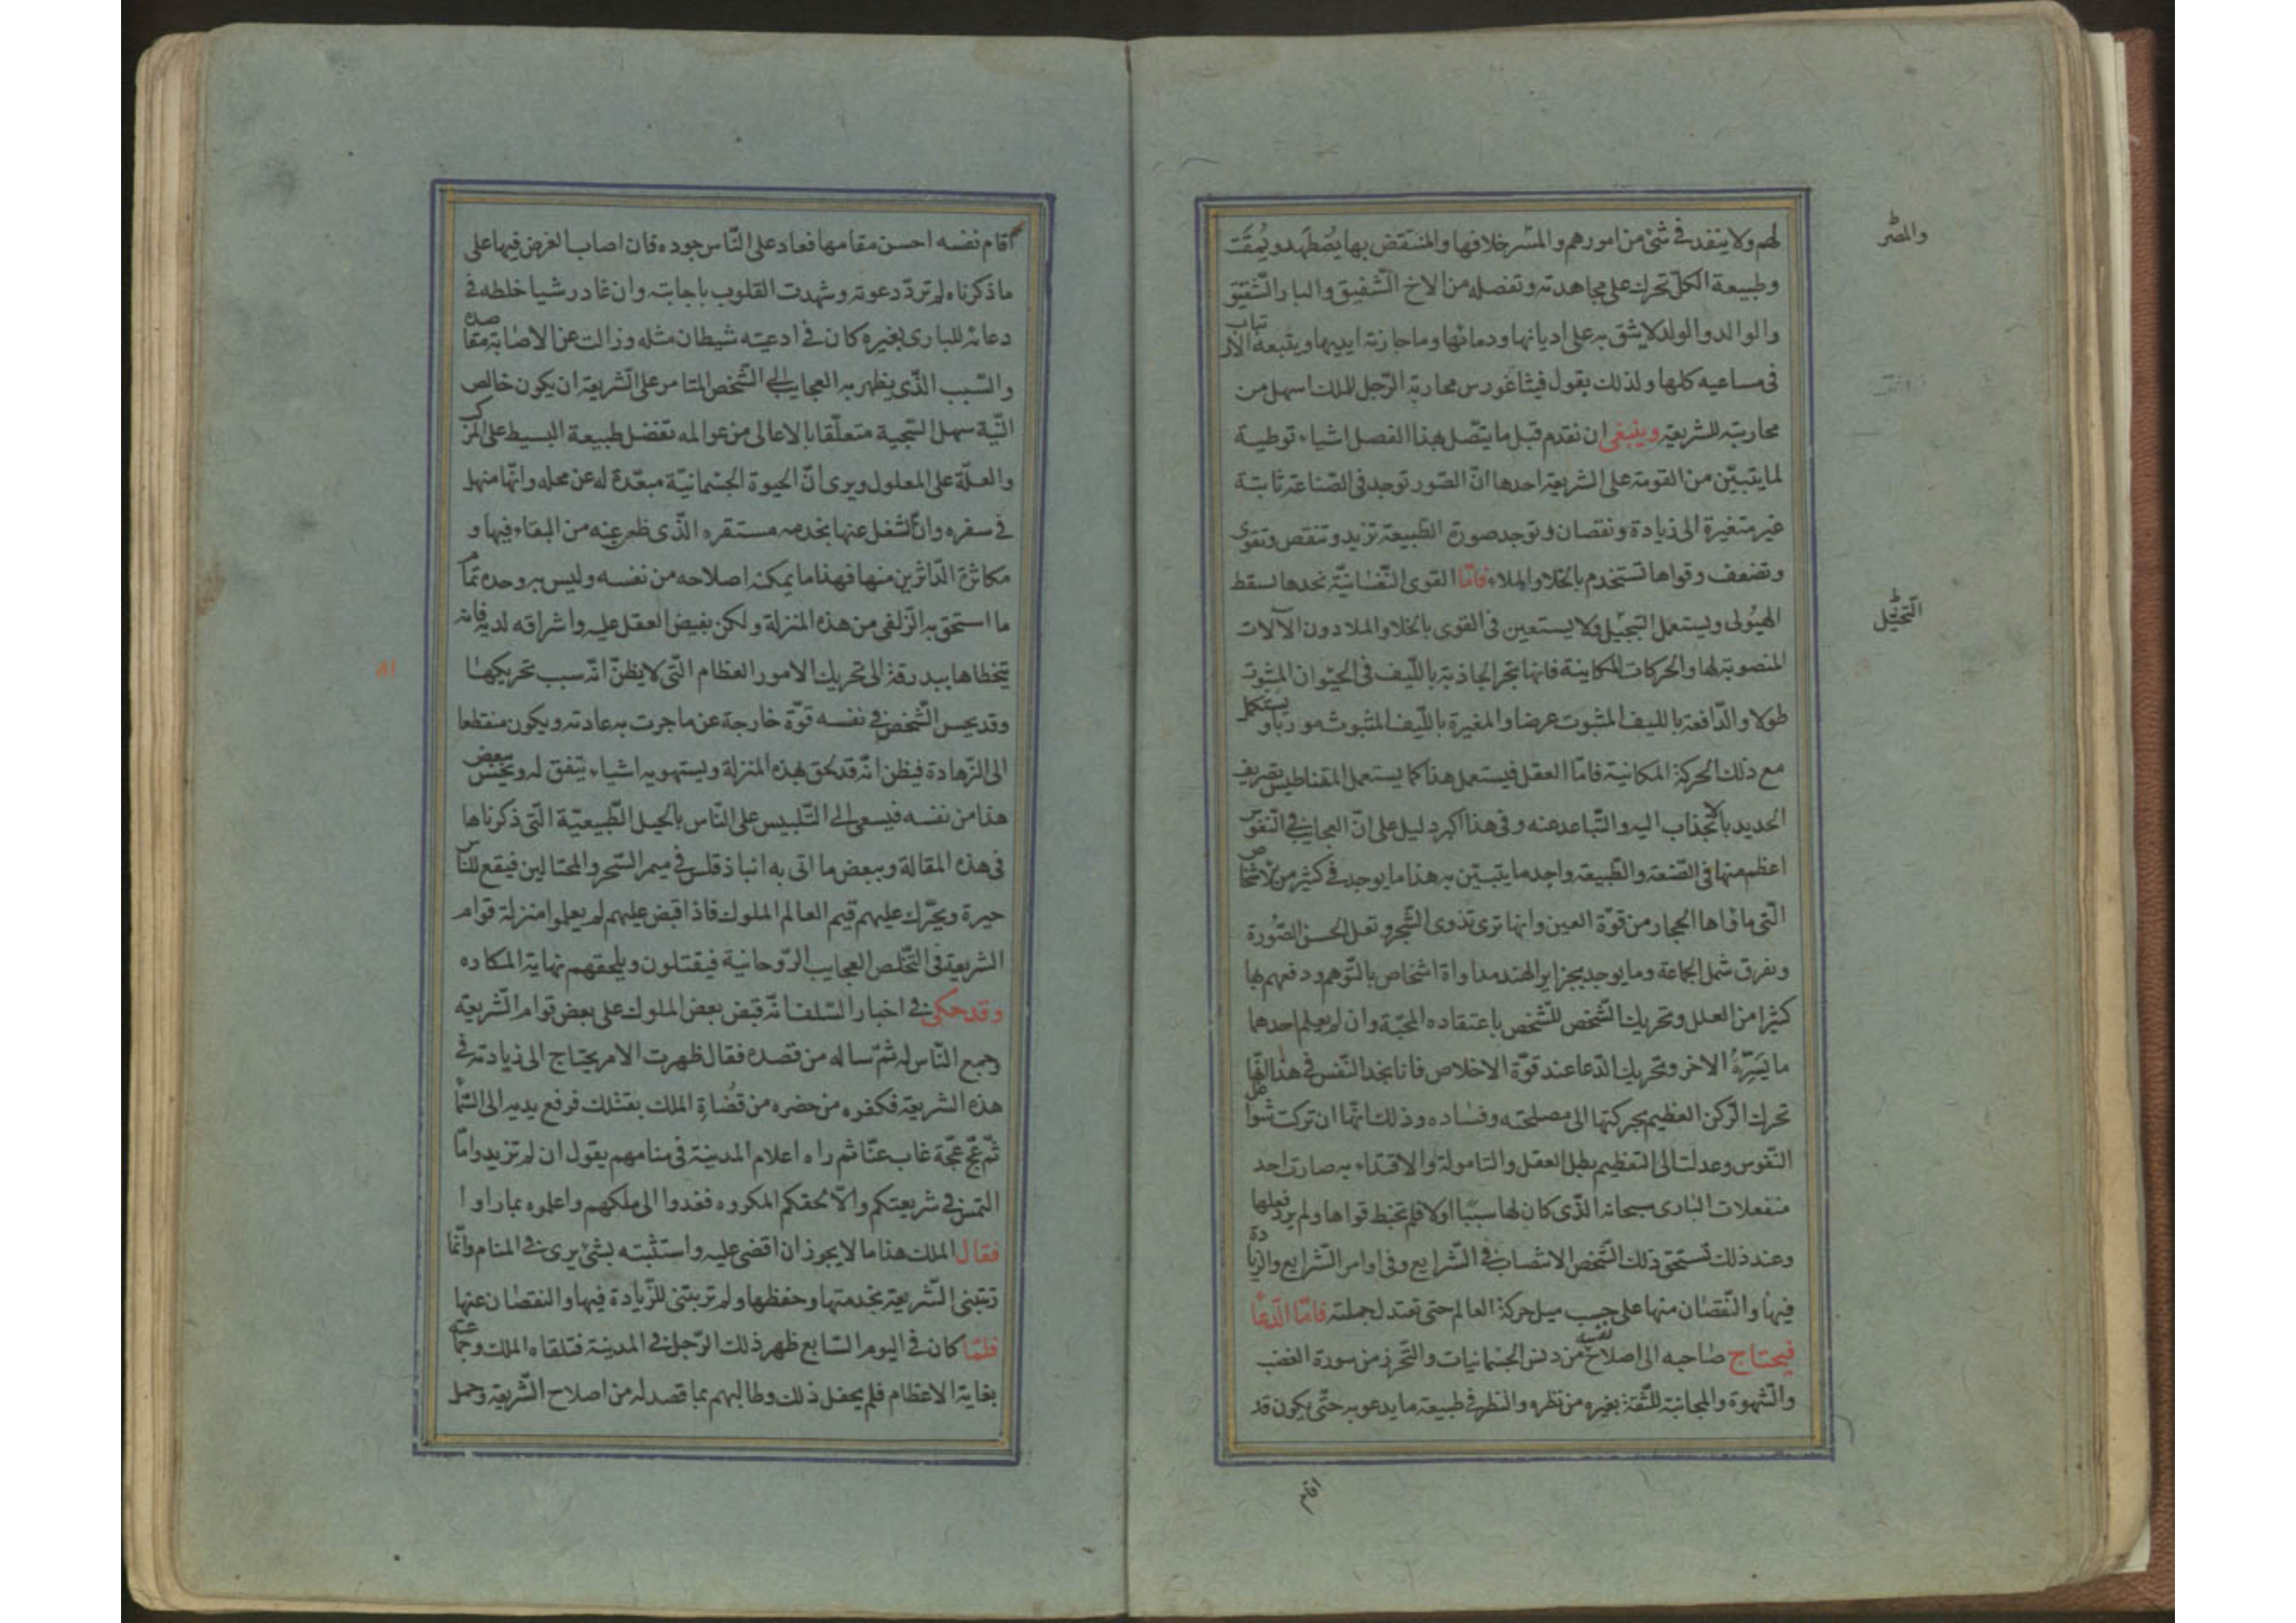 لهم ولا ينفد في شئ من امورهم والمسر خلافها والمنتقض بها يضطهد ويمقت
والمصر
وطبيعة الكل تحرك على مجاهدته وتفضله من الاخ الشفيق والبار الشفيق
والوالد والولد لا يشق به على اديانها ودمائها وما حازته ايديها ويتبعه الارتياب
فى مساعيه كلها ولذلك يقول فيثاغورس محاربة الرجل للملك اسهل من
محاربته للشريعة وينبغى ان نقدم قبل ما يتصل بهذا الفصل اشياء توطية
لما يتبين من القومة على الشريعة احدها ان الصور توجد فى الصناعة ثابتة
غير متغيرة الى زيادة ونقصان وتوجد صورة الطبيعة تزيد وتنقص وتقوى
وتضعف وقواها تستخدم بالخلا والملاء فاما القوى النفسانية نجدها تسقط
الهيولى ويستعمل التبجيل ولا يستعين فى القوى بالخلا والملا دون الآلات
التخيل
المنصوبة لها والحركات المكانية فانها تجر الجاذبة بالليف فى الحيوان المثبوت
طولا والدافعة بالليف المثبوت عرضا والمغيرة بالليف المثبوث موربا ويستعمل
مع ذلك الحركة المكانية فاما العقل فيستعمل هذا كما يستعمل المقناطيس بتصريف
الحديد بالانجذاب اليه والتباعد عنه وفى هذا اكبر دليل على ان العجايب في النفوس
اعظم منها فى الصنعة والطبيعة واجد ما يتبين به هذا ما يوجد في كثير من الاشخاص
التى مأواها الحجار من قوة العين وانها ترى تذوى الشجر وتعل الحسن الصورة
وتفرق شمل الجماعة وما يوجد بجزاير الهند مداواة اشخاص بالتوهم ودفعهم بها
كثيرا من العلل وتحريك الشخص للشخص باعتقاده المحبة وان لم يعلم احدهما
ما يسره الاخر وتحريك الدعا عند قوة الاخلاص فانا نجد النفس في هذا
تحرك الركن العظيم بحركتها الى مصلحته وفساده وذلك انها ان تركت شواغل
النفوس وعدلت الى التعظيم بطبل العقل والتامولة والاقتداء به صارت احد
منفعلات البارى سبحانه الذى كان لها سببا اولا فلم تخبط قواها ولم يرد فعلها
وعند ذلك تستحق ذلك الشخص الانتصاب في الشرايع وفى اوامر الشرايع والزيادة
فيها والنقصان منها على حسب ميل حركة العالم حتى تعتدل جملته فاما الدعا
فيحتاج صاحبه الى اصلاح نفسه من دنس الجسمانيات والتحرز من سورة الغضب
والشهوة والمجانبة للثقة بغيره من نظره والنظر في طبيعة ما يدعو به حتى يكون قد
اقام
اقام نفسه احسن مقامها فعاد على الناس جوده فان اصاب الغرض فيها على
ما ذكرناه لم ترد دعوته وشهدت القلوب باجابته وان غادر شيا خلطه في
دعائه للبارى بغيره كان في ادعيته شيطان مثله وزالت عن الاصابة مقاصده
والسبب الذى يظهر به العجايب الى الشخص المتامر على الشريعة ان يكون خالص
النية سهل السجية متعلقا بالاعالى من عوالمه تفضل طبيعة البسيط على المركب
والعلة على المعلول ويرى ان الحيوة الجسمانية مبعدة له عن محله وانها منهل
في سفره وان الشغل عنها بخدمة مستقره الذى ظعن عنه من البقاء فيها و
مكاثرة الداثرين منها فهذا ما يمكنه اصلاحه من نفسه وليس به وحده تمام
ما استحق به الزلفى من هذه المنزلة ولكن بفيض العقل عليه واشراقه لديه فانه
يتخطاها ببدرقة الى تحريك الامور العظام التى لا يظن انه سبب تحريكها
وقد يحس الشخص في نفسه قوة خارجة عن ما جرت به عادته ويكون منقطعا
الى الزهادة فيظن انه قد لحق بهذه المنزلة ويستهويه اشياء يتفق له ويحس ببعض
هذا من نفسه فيسعى الى التلبيس على الناس بالحيل الطبيعية التى ذكرناها
فى هذه المقالة وببعض ما اتى به انباذقلس في ميمر السحر والمحتالين فيقع للناس
حيرة ويحرك عليهم قيم العالم الملوك فاذا قبض عليهم لم يعلموا منزلة قوام
الشريعة فى التخلص العجايب الروحانية فيقتلون ويلحقهم نهاية المكاره
وقد حكى في اخبار السلف انه قبض بعض الملوك على بعض قوام الشريعة
وجمع الناس له ثم ساله من قصده فقال ظهرت الامر يحتاج الى زيادته في
هذه الشريعة فكفوه من حضره من قضاة الملك بقتلك فرفع يديه الى السماء
ثم عج عجة غاب عنا ثم راه اعلام المدينة فى منامهم يقول ان لم تزيدوا ما
التمس في شريعتكم والا لحقكم المكروه فغدوا الى ملكهم واعلموه بما راوا
فقال الملك هذا ما لا يجوز ان اقضى عليه واستثبته بشئ يرى في المنام وانما
تبتنى الشريعة بخدمتها وحفظها ولم تربتنى للزيادة فيها والنقصان عنها
فلما كان في اليوم السابع ظهر ذلك الرجل في المدينة فتلقاه الملك وجماعته
بغاية الاعظام فلم يحفل ذلك وطالبهم بما قصد له من اصلاح الشريعة وحمل